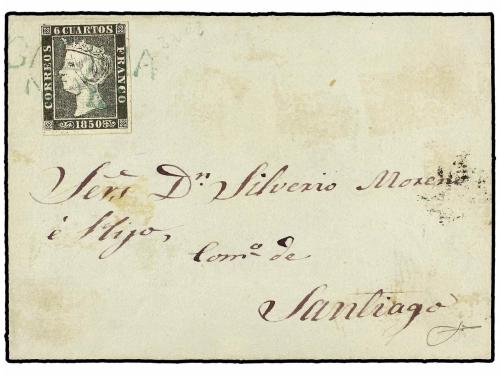 6 CUARTOS
CORREOS
FRANCO
1850
Señs Dn Silverio Moreno
é Hijo,
Comº de
Santiago